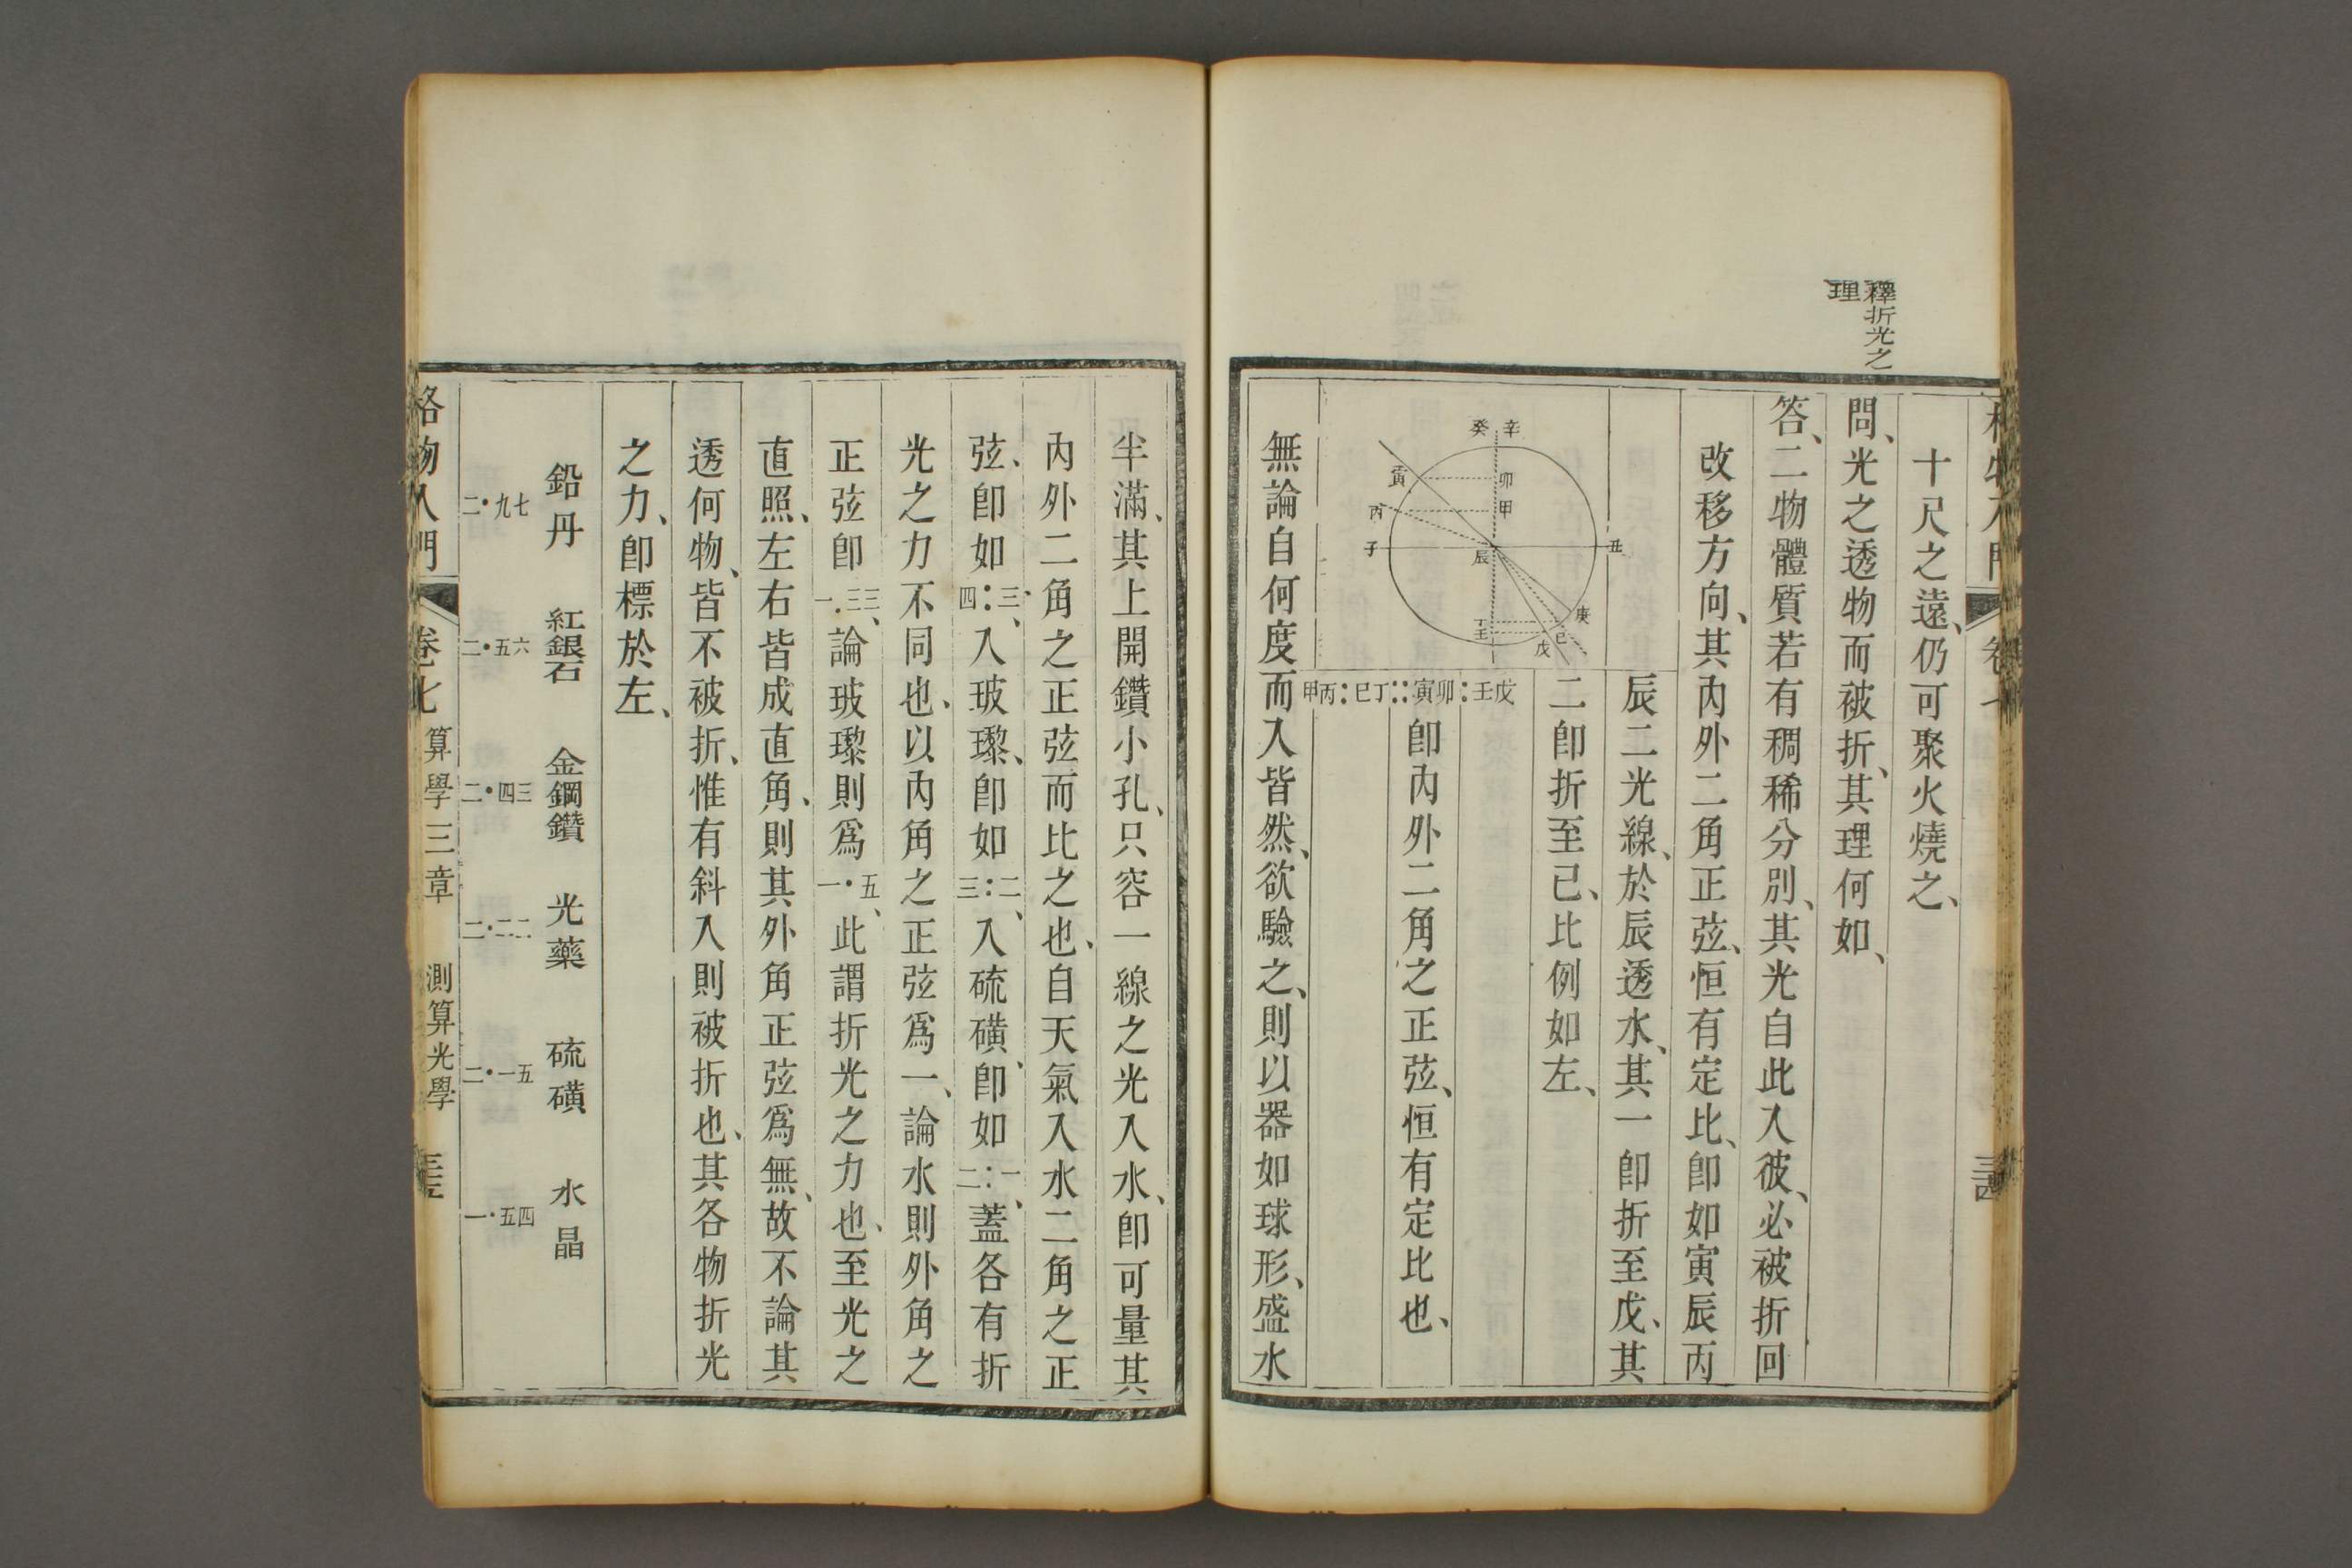 釋折光之
理
十尺之遠、仍可聚火燒之、
問、光之透物而被折、其理何如、
答、二物體質若有稠稀分別、其光自此入彼、必被折回
改移方向、其內外二角正弦、恒有定比、卽如寅辰丙
辰二光線、於辰透水、其一卽折至戊、其
二卽折至己、比例如左、
甲丙:巳丁::寅卯:壬戊
卽內外二角之正弦、恒有定比也、
癸 辛
寅 卯
丙 甲
子 辰 丑
庚
丁
壬 己
戊
無論自何度而入皆然、欲驗之、則以器如球形、盛水
半滿、其上開鑽小孔、只容一線之光入水、卽可量其
內外二角之正弦而比之也、自天氣入水二角之正
弦、卽如四:三、入玻瓈、卽如三:二、入硫磺、卽如二:一、蓋各有折
光之力不同也、以內角之正弦爲一、論水則外角之
正弦卽一.三三、論玻瓈則爲一·五、此謂折光之力也、至光之
直照、左右皆成直角、則其外角正弦爲無、故不論其
透何物、皆不被折、惟有斜入則被折也、其各物折光
之力、卽標於左、
鉛丹 紅銀石 金鋼鑽 光藥 硫磺 水晶
二·九七 二·五六 二·四三 二·二二 二·一五 一·五四
格物入門 卷七 算學三章 測算光學 三五